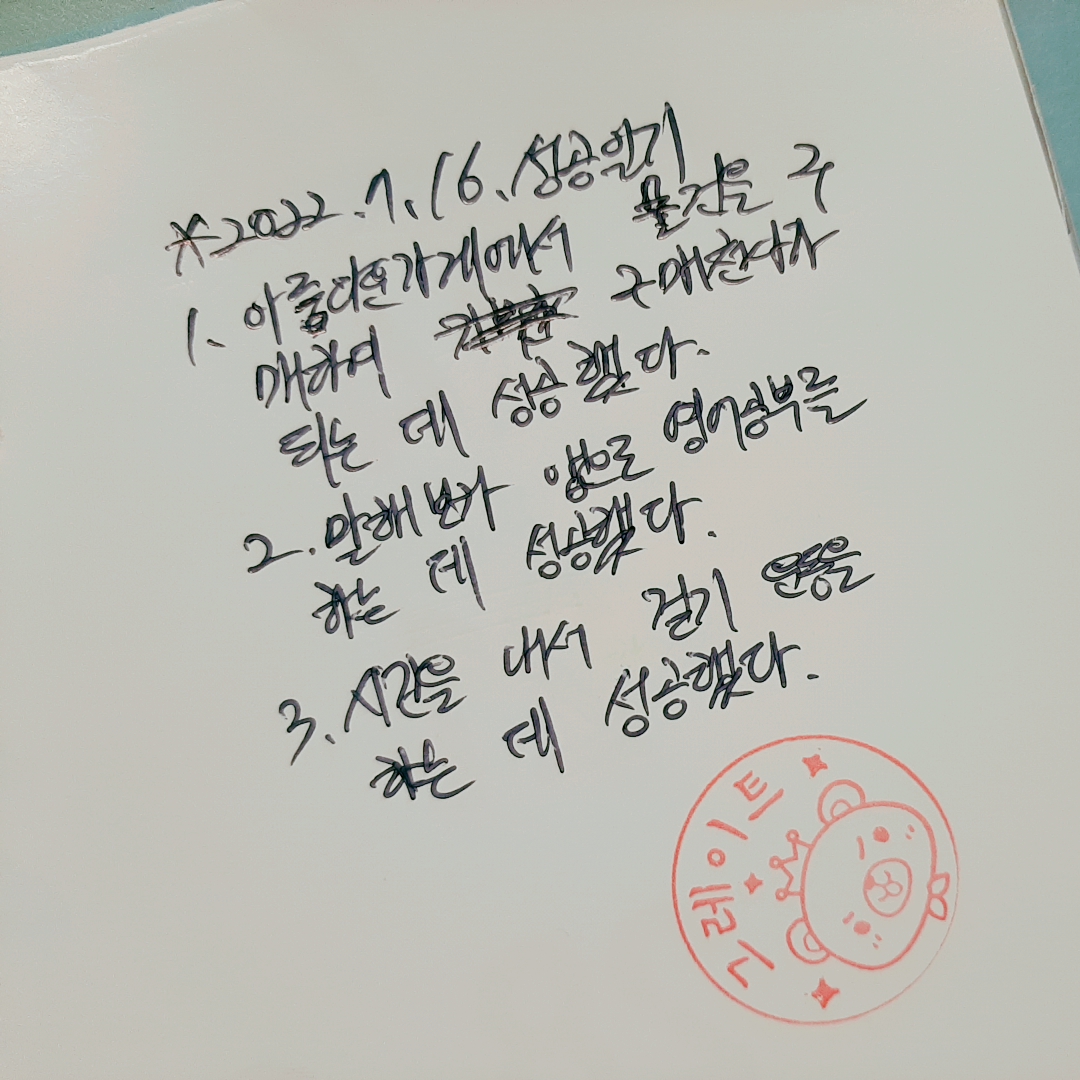 *2022.7.16.성공일기
1. 아름다운가게에서 물건을 구
매하여 구매천사가
되는 데 성공했다.
2. 말해보카 앱으로 영어공부를
하는 데 성공했다.
3. 시간을 내서 걷기 운동을
하는 데 성공했다.
그레이트